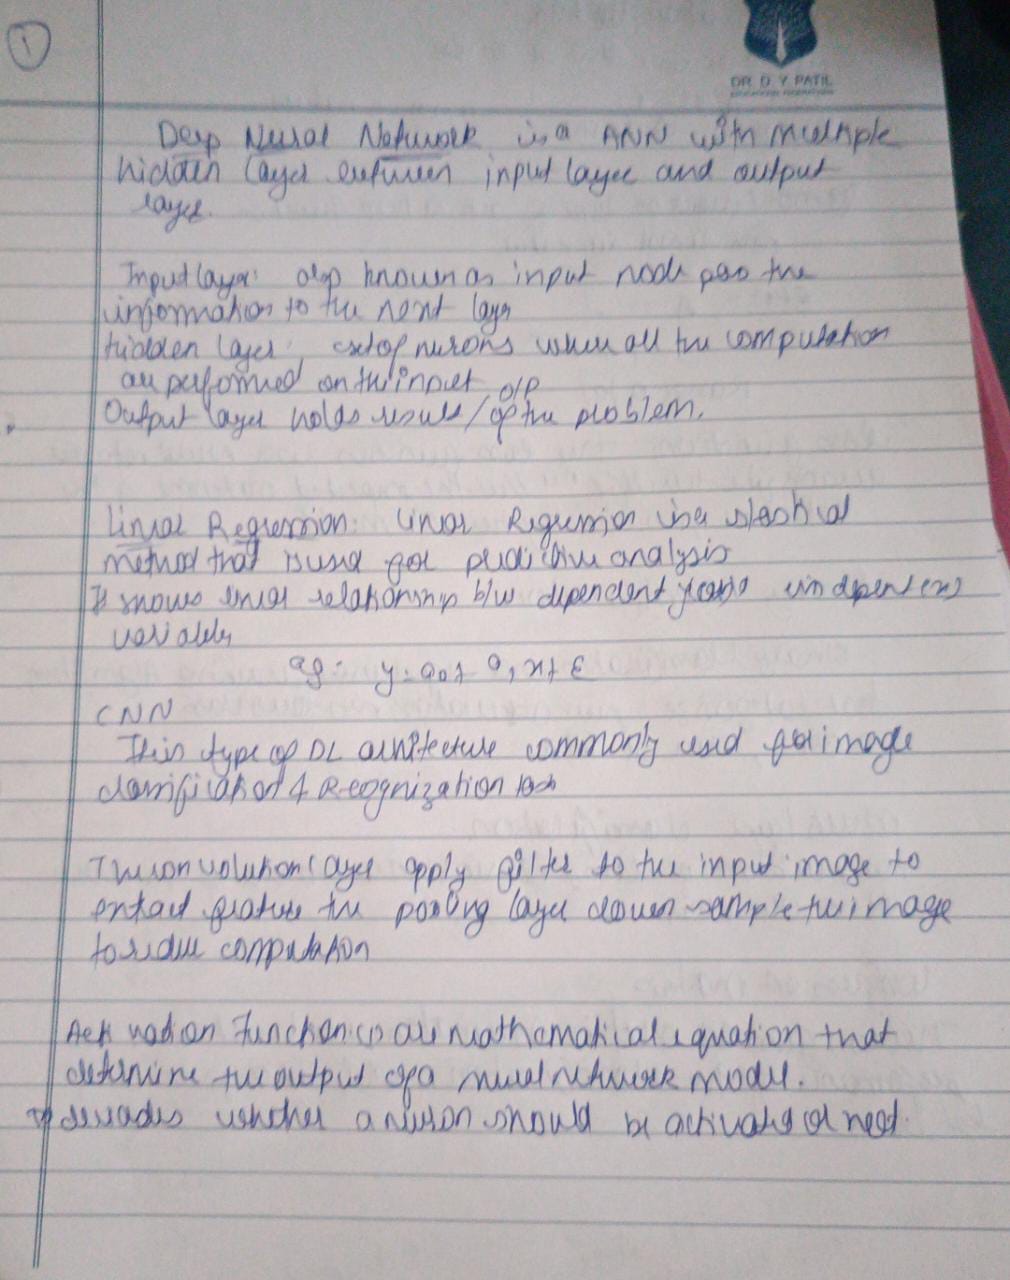 1
DR. D. Y. PATIL
Deep Neural Network is a ANN with multiple
hidden layer between input layer and output
layer.
Input layer: also known as input node pass the
information to the next layer
hidden layer: set of nurons when all the computation
are performed on the input
o/p
Output layer holds result / of the problem.
Linear Regression: Linear Regression is a statistical
method that is used for predictive analysis
It shows linear relationship b/w dependent y and independent (x)
variables
eg: y = a0 + a1x + ε
CNN
It is type of DL architecture commonly used for image
classification & Recognization task
The convolution layer apply filter to the input image to
extract feature the pooling layer down sample the image
to reduce computation
Activation function is are mathematical equation that
determine the output of a neural network model.
decides whether a neuron should be activated or not.